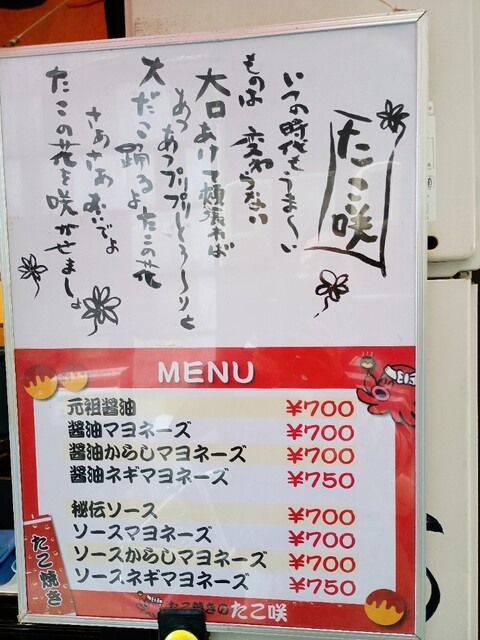 たこ咲
いつの時代もうま〜い
ものは変わらない
大口あけて頬張れば
あつあつプリプリとろ〜りと
大だこ踊るよたこの花
さあさあ皆でよ
たこの花を咲かせましょ
MENU
元祖醤油 ¥700
醤油マヨネーズ ¥700
醤油からしマヨネーズ ¥700
醤油ネギマヨネーズ ¥750
秘伝ソース ¥700
ソースマヨネーズ ¥700
ソースからしマヨネーズ ¥700
ソースネギマヨネーズ ¥750
たこ焼き
たこ焼きのたこ咲